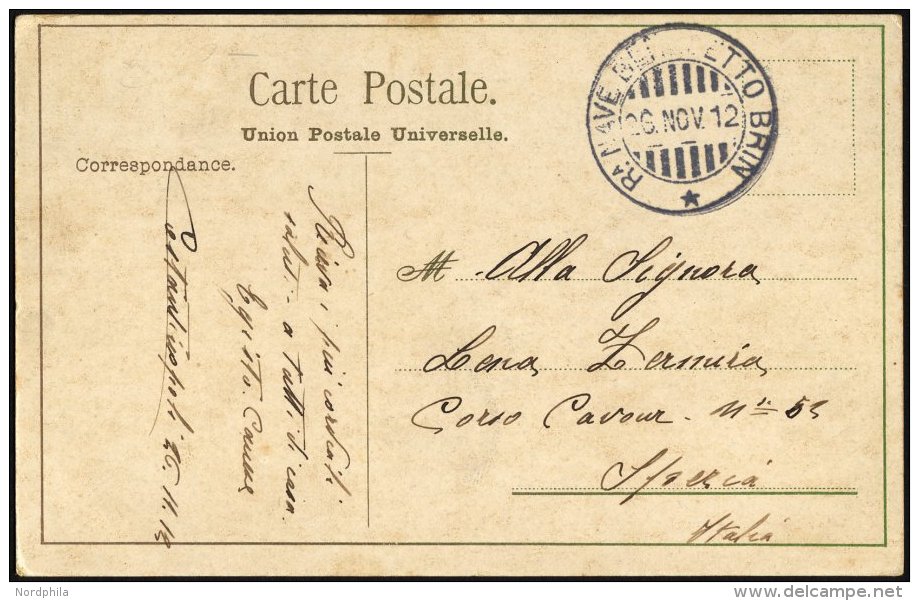 Carte Postale.
Union Postale Universelle.
Correspondance.
Rª NAVE BENEDETTO BRIN
26. NOV. 12
M. Alla Signora
Lena Zermira
Corso Cavour - Nº 5
Spezia
Italia
i più cordiali
saluti a tutti di casa
Egisto
Costantinopoli 26.11.12
Nordphila
delcampe.net